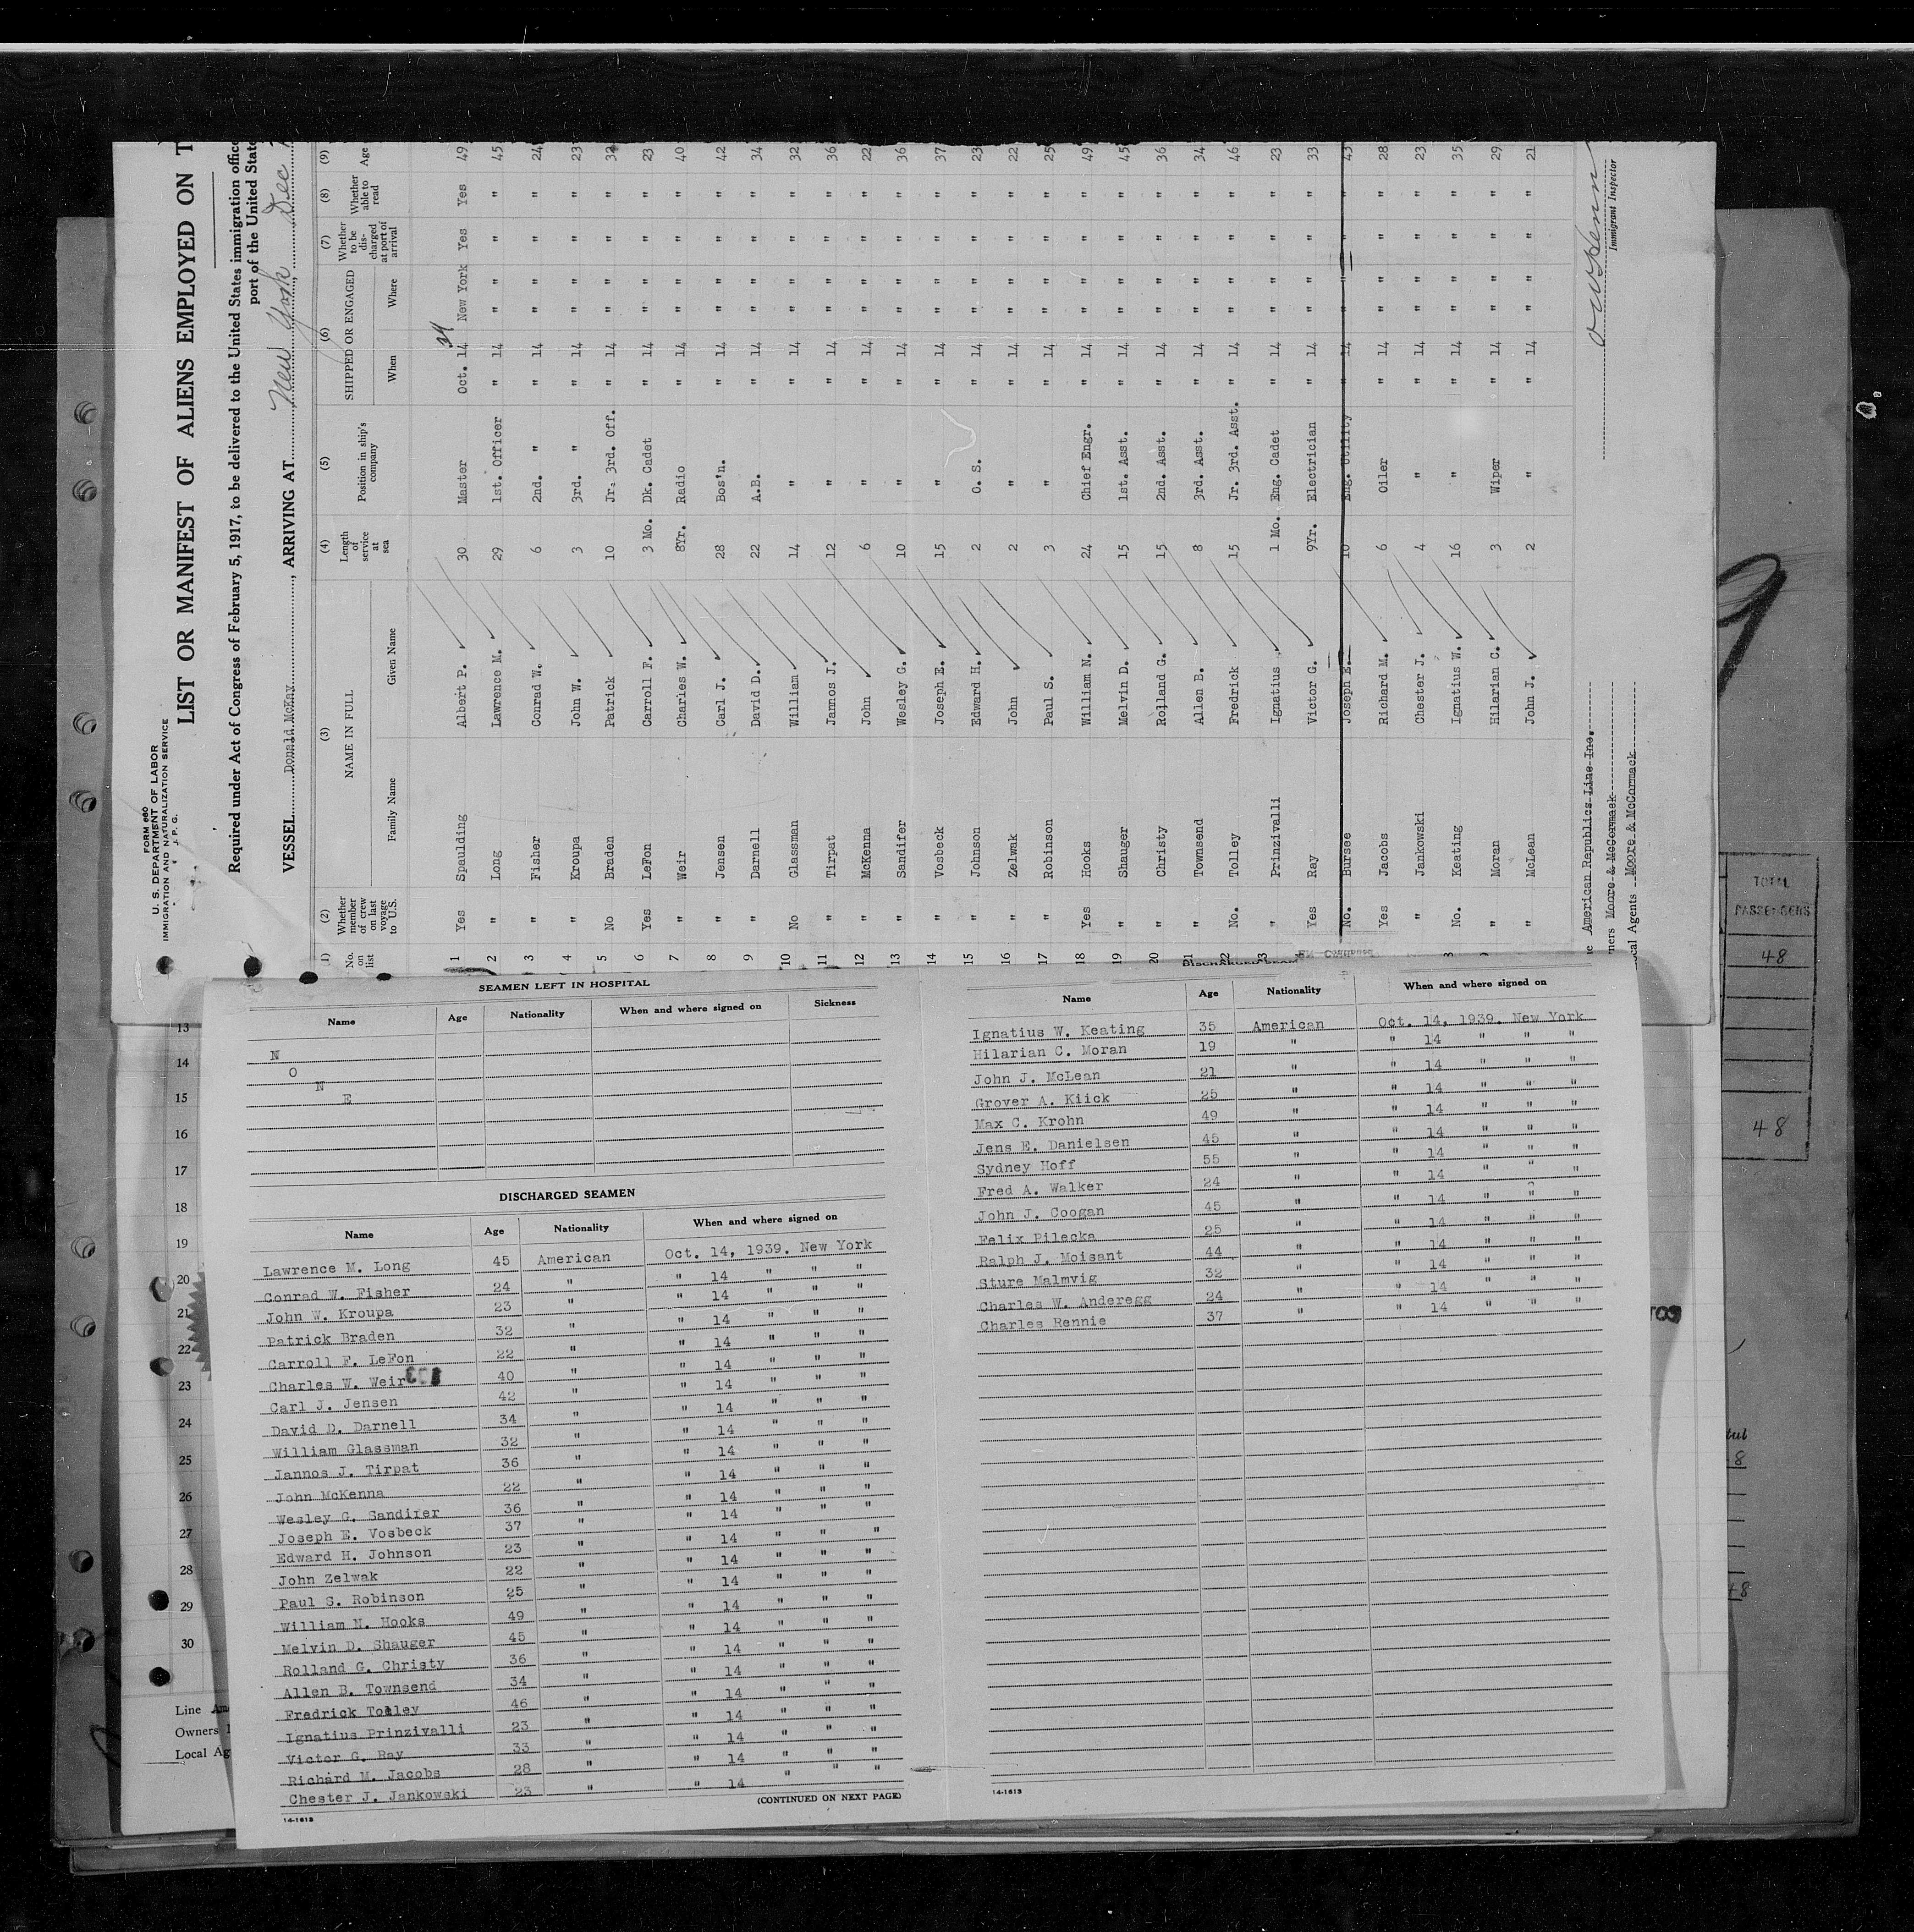 FORM 680
U. S. DEPARTMENT OF LABOR
IMMIGRATION AND NATURALIZATION SERVICE
J. P. G.
LIST OR MANIFEST OF ALIENS EMPLOYED ON T
Required under Act of Congress of February 5, 1917, to be delivered to the United States immigration office
port of the United State
VESSEL Donald McKay, ARRIVING AT New York, Dec
(1) (2) (3) (4) (5) (6) (7) (8) (9)
No. on list Whether member of crew on last voyage to U.S. NAME IN FULL Family Name Given Name Length of service at sea Position in ship's company SHIPPED OR ENGAGED When Where Whether to be discharged at port of arrival Whether able to read Age
1 Yes Spaulding Albert P. 30 Master Oct. 14 New York Yes Yes 49
2 " Long Lawrence M. 29 1st. Officer " 14 " " " " 45
3 " Fisher Conrad W. 6 2nd. " " 14 " " " " 24
4 " Kroupa John W. 3 3rd. " " 14 " " " " 23
5 No Braden Patrick 10 Jr. 3rd. Off. " 14 " " " " 32
6 Yes LeFon Carroll F. 3 Mo. Dk. Cadet " 14 " " " " 23
7 " Weir Charles W. 8Yr. Radio " 14 " " " " 40
8 " Jensen Carl J. 28 Bos'n. " 14 " " " " 42
9 " Darnell David D. 22 A.B. " 14 " " " " 34
10 No Glassman William 14 " " 14 " " " " 32
11 " Tirpat Jannos J. 12 " " 14 " " " " 36
12 " McKenna John 6 " " 14 " " " " 22
13 " Sandifer Wesley G. 10 " " 14 " " " " 36
14 " Vosbeck Joseph E. 15 " " 14 " " " " 37
15 " Johnson Edward H. 2 O. S. " 14 " " " " 23
16 " Zelwak John 2 " " 14 " " " " 22
17 " Robinson Paul S. 3 " " 14 " " " " 25
18 Yes Hooks William N. 24 Chief Engr. " 14 " " " " 49
19 " Shauger Melvin D. 15 1st. Asst. " 14 " " " " 45
20 " Christy Rolland G. 15 2nd. Asst. " 14 " " " " 36
21 " Townsend Allen B. 8 3rd. Asst. " 14 " " " " 34
22 No. Tolley Fredrick 15 Jr. 3rd. Asst. " 14 " " " " 46
23 " Prinzivalli Ignatius 1 Mo. Eng. Cadet " 14 " " " " 23
Yes Ray Victor G. 9Yr. Electrician " 14 " " " " 33
No. Bursee Joseph E. 10 Eng. Utility " 14 " " " " 43
Yes Jacobs Richard M. 6 Oiler " 14 " " " " 28
" Jankowski Chester J. 4 " " 14 " " " " 23
No. Keating Ignatius W. 16 " " 14 " " " " 35
" Moran Hilarian C. 3 Wiper " 14 " " " " 29
" McLean John J. 2 " " 14 " " " " 21
American Rapublics Line Inc.
ners Moore & McCormack
cal Agents Moore & McCormack
Immigrant Inspector
SEAMEN LEFT IN HOSPITAL
Name Age Nationality When and where signed on Sickness
N
O
N
E
DISCHARGED SEAMEN
Name Age Nationality When and where signed on
Lawrence M. Long 45 American Oct. 14, 1939. New York
Conrad W. Fisher 24 " " 14 " " "
John W. Kroupa 23 " " 14 " " "
Patrick Braden 32 " " 14 " " "
Carroll F. LeFon 22 " " 14 " " "
Charles W. Weir 40 " " 14 " " "
Carl J. Jensen 42 " " 14 " " "
David D. Darnell 34 " " 14 " " "
William Glassman 32 " " 14 " " "
Jannos J. Tirpat 36 " " 14 " " "
John McKenna 22 " " 14 " " "
Wesley G. Sandifer 36 " " 14 " " "
Joseph E. Vosbeck 37 " " 14 " " "
Edward H. Johnson 23 " " 14 " " "
John Zelwak 22 " " 14 " " "
Paul S. Robinson 25 " " 14 " " "
William N. Hooks 49 " " 14 " " "
Melvin D. Shauger 45 " " 14 " " "
Rolland G. Christy 36 " " 14 " " "
Allen B. Townsend 34 " " 14 " " "
Fredrick Tolley 46 " " 14 " " "
Ignatius Prinzivalli 23 " " 14 " " "
Victor G. Ray 33 " " 14 " " "
Richard M. Jacobs 28 " " 14 " " "
Chester J. Jankowski 23 " " 14 " " "
(CONTINUED ON NEXT PAGE)
14-1613
Name Age Nationality When and where signed on
Ignatius W. Keating 35 American Oct. 14, 1939. New York
Hilarian C. Moran 19 " " 14 " " "
John J. McLean 21 " " 14 " " "
Grover A. Kiick 25 " " 14 " " "
Max C. Krohn 49 " " 14 " " "
Jens E. Danielsen 45 " " 14 " " "
Sydney Hoff 55 " " 14 " " "
Fred A. Walker 24 " " 14 " " "
John J. Coogan 45 " " 14 " " "
Felix Pilecka 25 " " 14 " " "
Ralph J. Moisant 44 " " 14 " " "
Sture Malmvig 32 " " 14 " " "
Charles W. Anderegg 24 " " 14 " " "
Charles Rennie 37 " " 14 " " "
14-1613
13
14
15
16
17
18
19
20
21
22
23
24
25
26
27
28
29
30
Line
Owners
Local Ag
TOTAL
PASSENGERS
48
48